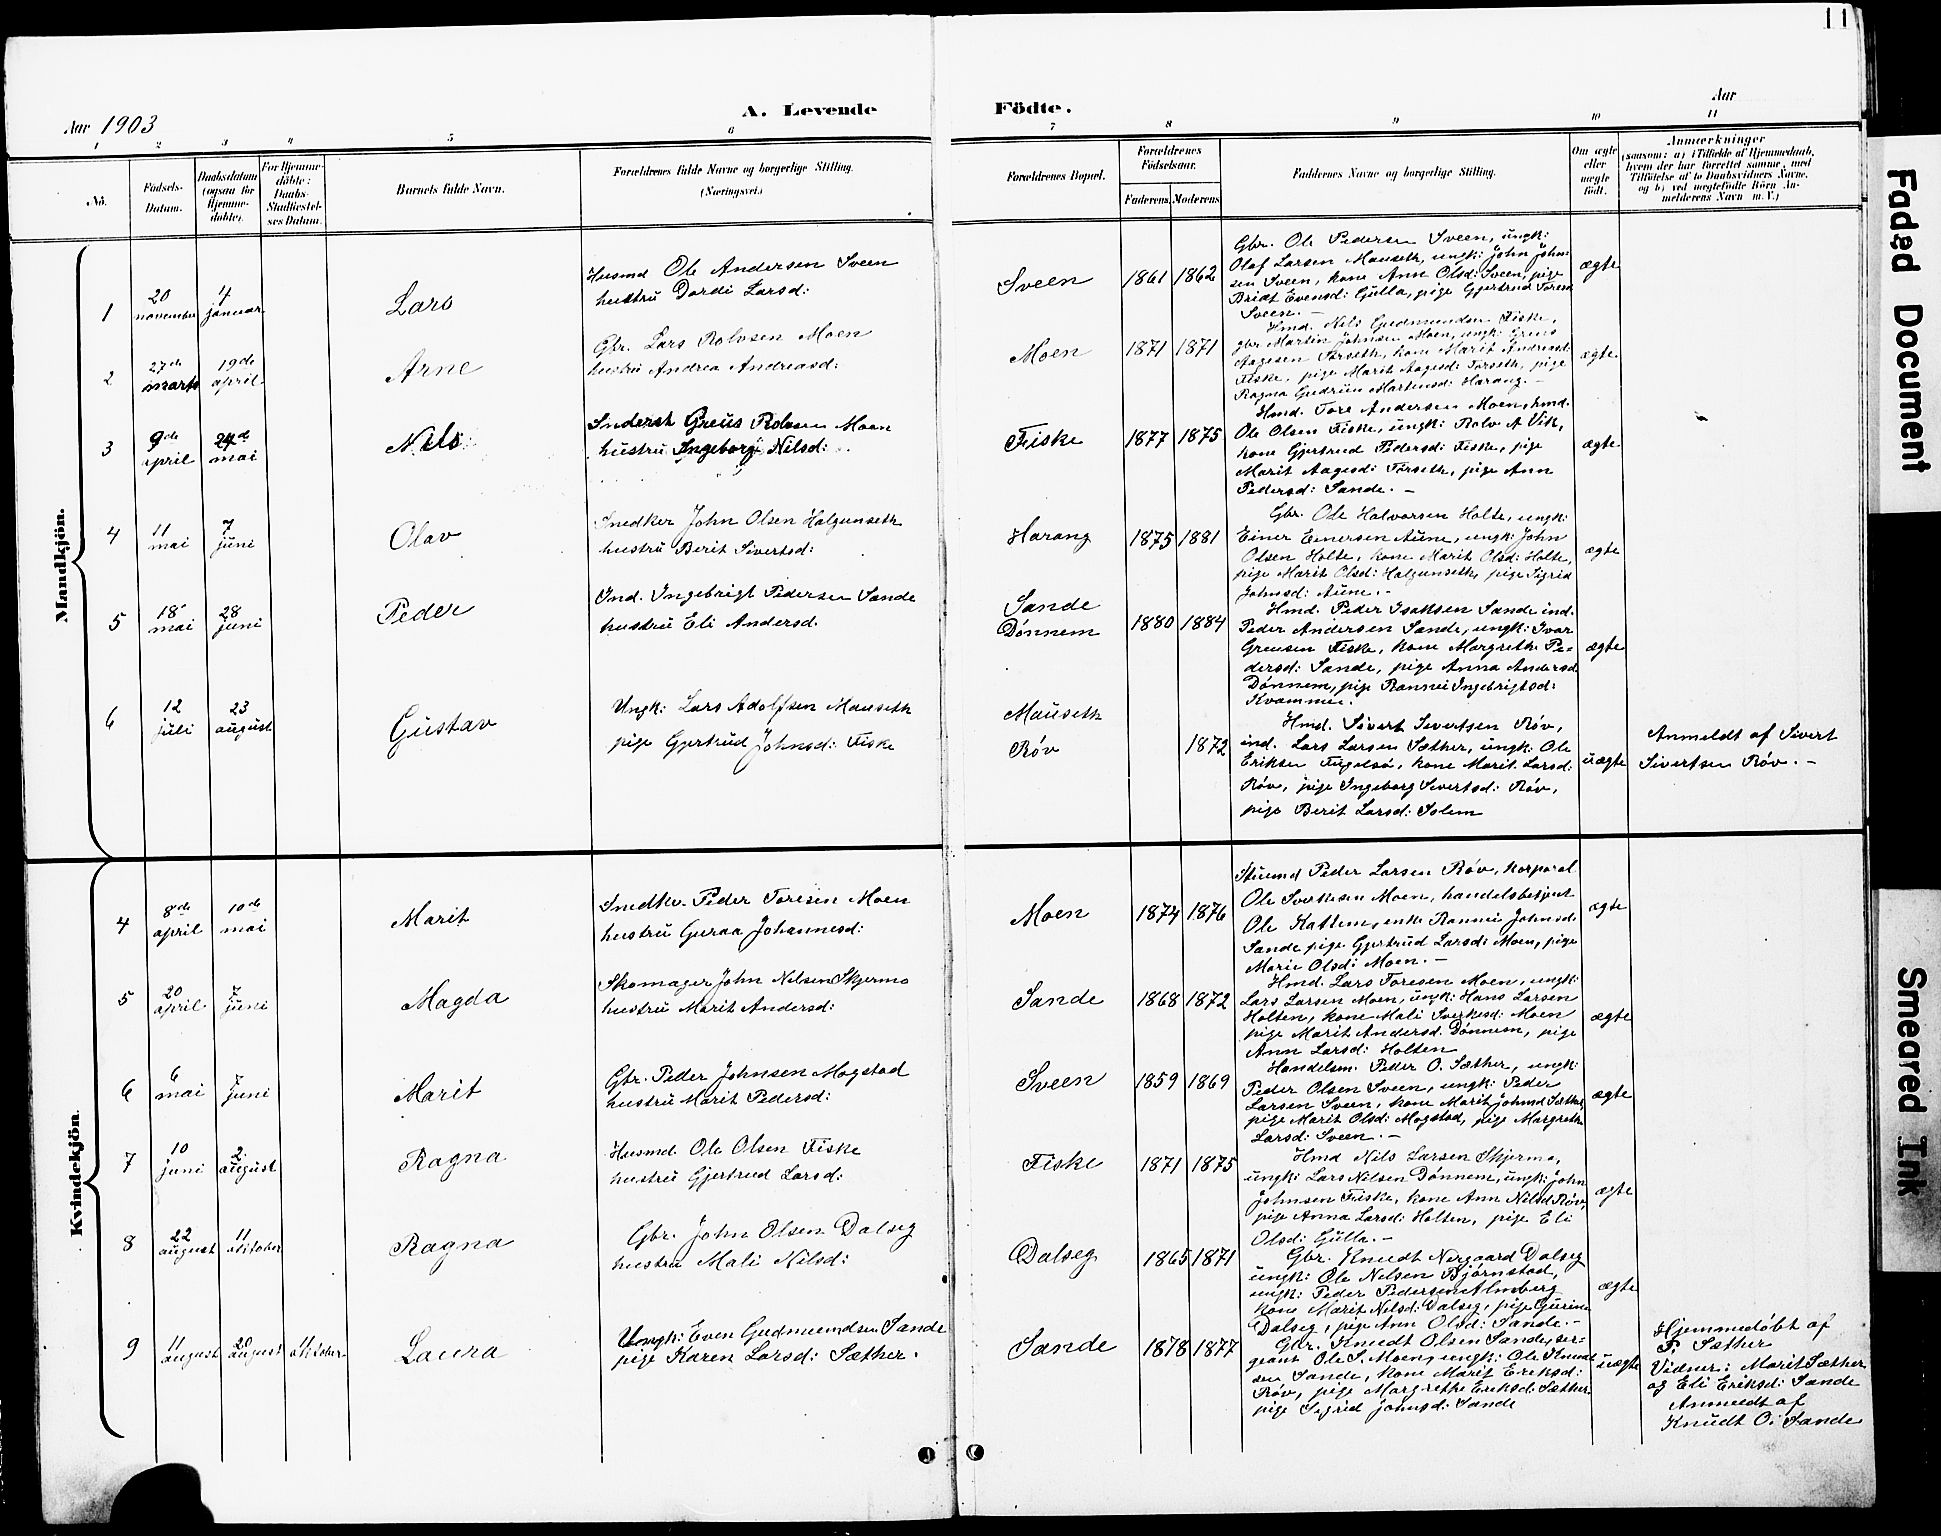 11
A. Levende Födte.
Aar 1903
Aar
1 2 3 4 5 6 7 8 9 10 11
No.
Födsels-Datum.
Daabsdatum (ogsaa for Hjemmedöbte).
For Hjemmedöbte: Daabs-Stadfæstelses Datum.
Barnets fulde Navn.
Forældrenes fulde Navne og borgerlige Stilling. (Næringsvei.)
Forældrenes Bopæl.
Forældrenes Födselsaar.
Faderens. Moderens.
Faddernes Navne og borgerlige Stilling.
Om ægte eller uægte født.
Anmærkninger
(saasom: a) i Tilfælde af Hjemmedaab, hvem der har forrettet samme, med Tilföielse af to Daabsvidners Navne, og b) ved uægtefödte Börn Anmelderens Navn m. V.)
Mandkjön.
1
20 november
4 januar
Lars
Husmd Ole Andersen Sveen
hustru Dordi Larsd:
Sveen
1861 1862
Gbr. Ole Pedersen Sveen, ungk:
Olaf Larsen Mauseth, ungk: John John-
sen Sveen, kone Ann Olsd: Sveen, pige
Bridt Evensd: Gulla, pige Gjertrud Toresd
Sveen. –
ægte
2
27de marts
19de april
Arne
Gbr. Lars Rolvsen Moen
hustru Andrea Andreasd:
Moen
1871 1871
Hmd. Nils Gudmundsen Fiske,
gbr Martin Johnsen Moen, ungk: Greus
Aagesen Forseth, kone Marit Andreasd:
Fiske, pige Marit Aagesd: Forseth, pige
Ragna Gudrun Martensd: Harang. –
ægte
3
9de april
24de mai
Nils
Inderst Greus Rolvsen Moen
hustru Ingeborg Nilsd:
Fiske
1877 1875
Hmd. Tore Andersen Moen, hmd.
Ole Olsen Fiske, ungk: Rolv A Vik,
kone Gjertrud Pedersd: Fiske, pige
Marit Aagesd: Forseth, pige Ann
Pedersd: Sande. –
ægte
4
11 mai
7 juni
Olav
Snedker John Olsen Halgunseth
hustru Berit Sivertsd:
Harang
1875 1881
Gbr. Ole Halvorsen Holte, ungk:
Einer Einersen Aune, ungk: John
Olsen Holte, kone Marit Olsd: Holte,
pige Marit Olsd: Halgunseth, pige Sigrid
Johnsd: Aune. –
ægte
5
18 mai
28 juni
Peder
Ind. Ingebrigt Pedersen Sande
hustru Eli Andersd.
Sande
Dønnem
1880 1884
Hmd. Peder Isaksen Sande ind.
Peder Andersen Sande, ungk: Ivar
Greusen Fiske, kone Margrethe Pe-
dersd: Sande, pige Anna Andersd
Dønnem, pige Rannei Ingebrigtsd:
Kvammen.
ægte
6
12 juli
23 august
Gustav
Ungk: Lars Adolfsen Mauseth
pige Gjertrud Johnsd: Fiske
Mauseth
Røv
1872
Hmd. Sivert Sivertsen Røv,
ind. Lars Larsen Sæther, ungk: Ole
Eriksen Fugelsø, kone Marit Larsd:
Røv, pige Ingeborg Sivertsd: Røv,
pige Berit Larsd: Solem
uægte
Anmeldt af Sivert
Sivertsen Røv. –
Kvindekjön.
4
8de april
10de mai
Marit
Snedker Peder Toresen Moen
hustru Guraa Johannesd:
Moen
1874 1876
Peder Larsen Røv, korporal
Ole Sverkesen Moen, handelsbetjent
Ole Kattem, enke Rannei Johnsd:
Sande pige Gjertrud Larsd: Moen, pige
Marie Olsd: Moen. –
ægte
5
20 april
7 juni
Magda
Skomager John Nilsen Skjermo
hustru Marit Andersd:
Sande
1868 1872
Hmd. Lars Toresen Moen, ungk:
Lars Larsen Moen, ungk: Hans Larsen
Holten, kone Mali Sverkesd: Moen
pige Marit Andersd: Dønnem, pige
Ann Larsd: Holten
ægte
6
6 mai
7 juni
Marit
Gbr. Peder Johnsen Mogstad
hustru Marit Pedersd:
Sveen
1859 1869
Handelsm. Peder O. Sæther, ungk:
Peder Olsen Sveen, ungk: Peder
Larsen Sveen, kone Marit Johnsd Sæther,
pige Marit Olsd: Mogstad, pige Margrethe
Larsd: Sveen. –
ægte
7
10 juni
2 august
Ragna
Husmd. Ole Olsen Fiske
hustru Gjertrud Larsd:
Fiske
1871 1875
Hmd Nils Larsen Skjermo,
ungk: Lars Nilsen Dønnem, ungk: John
Johnsen Fiske, kone Ann Nilsd Røv,
pige Anna Larsd: Holten, pige Eli
Olsd: Gulla. –
ægte
8
22 august
11 oktober
Ragna
Gbr. John Olsen Dalseg
hustru Mali Nilsd:
Dalseg
1865 1871
Gbr. Knudt Nergaard Dalseg
ungk: Ole Nelsen Bjørnstad,
ungk: Peder Pedersen Almberg
kone Marit Nelsd: Dalseg, pige Gurine
Dalseg, pige Ann Olsd: Sande. –
ægte
9
11 august
20 august
11 oktober
Laura
Ungk: Even Gudmundsen Sande
pige Karen Larsd: Sæther.
Sande
1878 1877
Gbr. Knudt Olsen Sande, ser-
geant Ole S. Moen, ungk: Ole Knud-
sen Sande, kone Marit Eriksd:
Røv, pige Margrethe Eriksd: Sæther
pige Sigrid Johnsd: Sande
uægte
Hjemmedøbt af
P. Sæther
Vidner: Marit Sæther
og Eli Eriksd: Sande
Anmeldt af
Knudt O. Sande
Faded Document
Smeared Ink